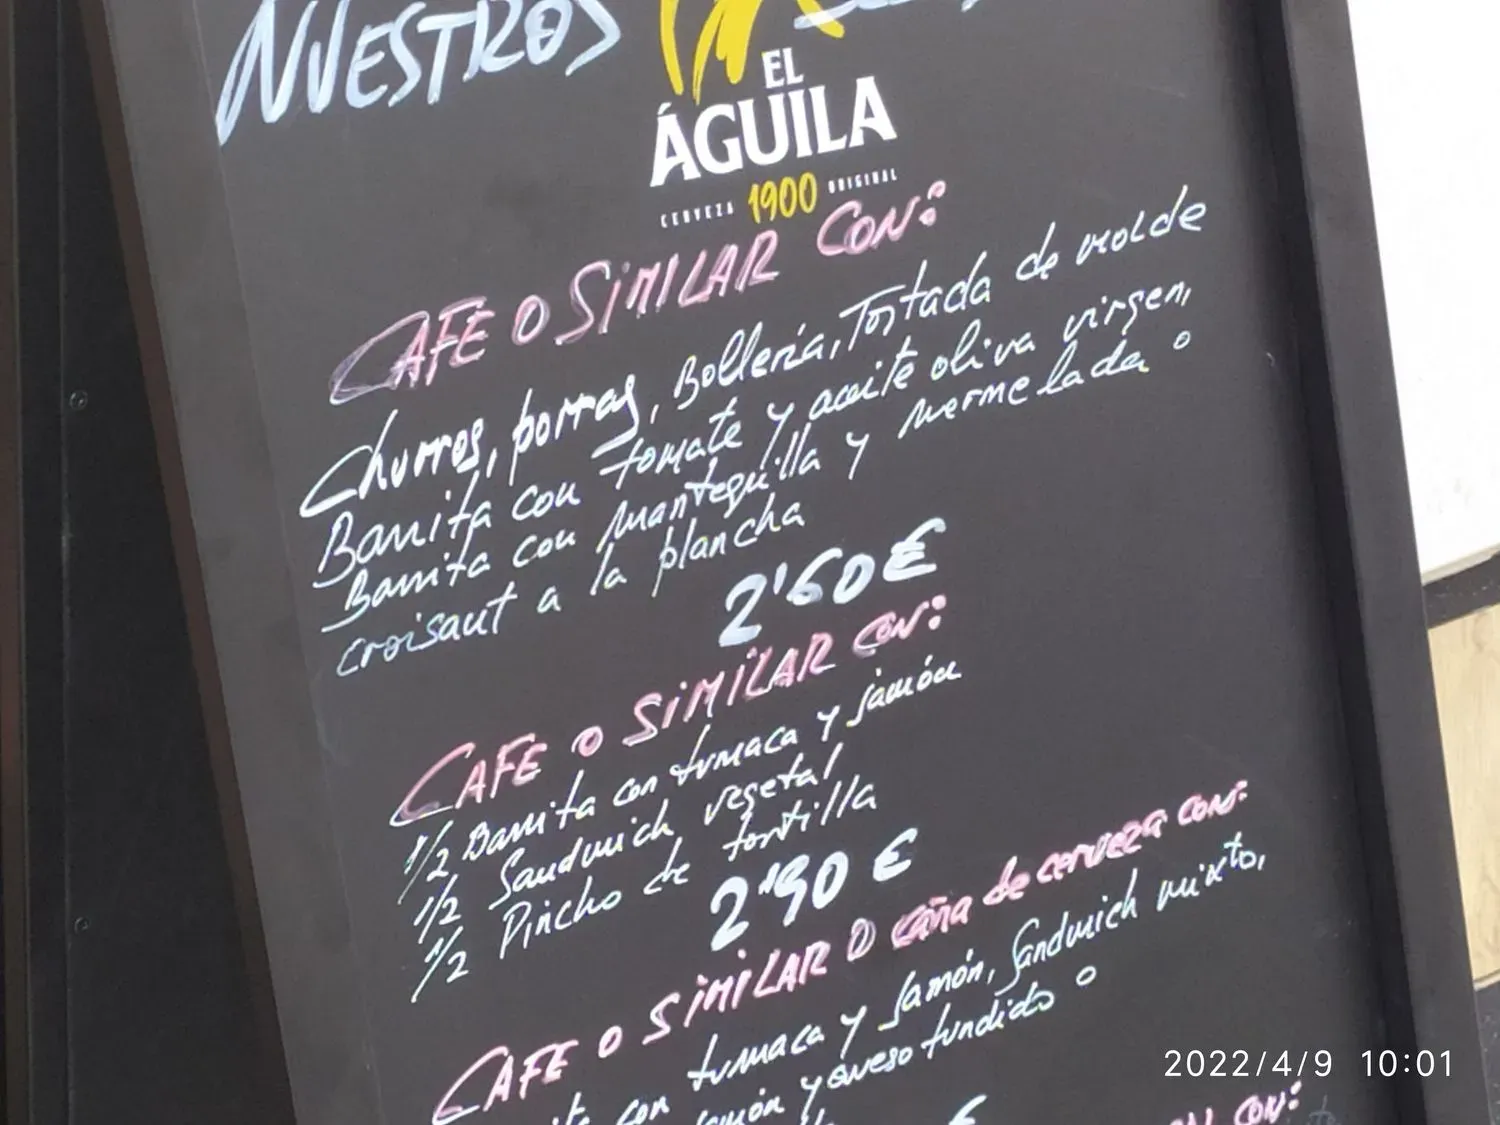 NUESTROS
EL
ÁGUILA
CERVEZA 1900 ORIGINAL
CAFE O SIMILAR CON:
Churros, porras, Bolleria, Tostada de molde
Barrita con tomate y aceite oliva virgen,
Barrita con mantequilla y mermelada o
croisant a la plancha
2'60€
CAFE O SIMILAR CON:
1/2 Barrita con tumaca y jamón
1/2 Sandwich vegetal
1/2 Pincho de tortilla
2'90 €
CAFE O SIMILAR O caña de cerveza CON:
con tumaca y Jamón, Sandwich mixto,
y queso fundido o
€
CON:
2022/4/9 10:01